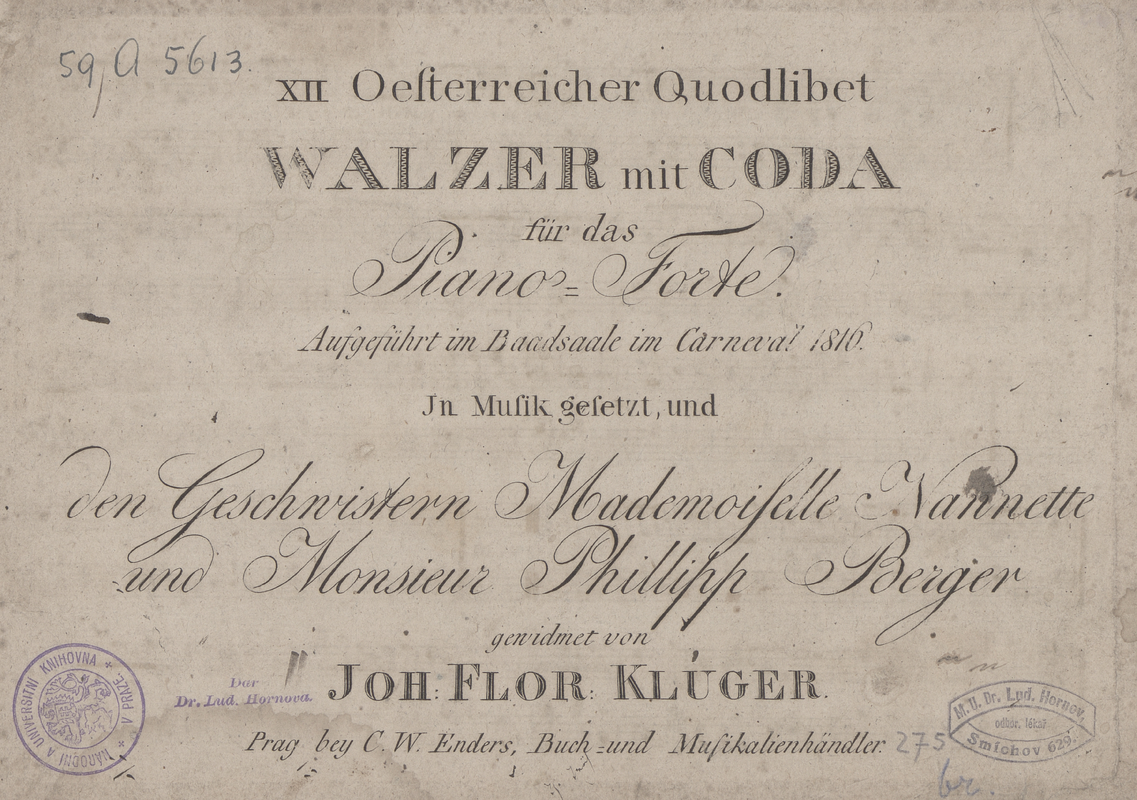 59, A 5613.
XII Oeſterreicher Quodlibet
WALZER mit CODA
für das
Piano = Forte.
Aufgeführt im Baadsaale im Carneval 1816.
Jn Muſik geſetzt, und
den Geschwistern Mademoiſelle Nannette
und Monsieur Phillipp Berger
gewidmet von
JOH: FLOR: KLUGER.
Prag bey C. W. Enders, Buch = und Muſikalienhändler.
275
br.
NÁRODNÍ A UNIVERSITNÍ KNIHOVNA + V PRAZE +
Dar
Dr. Lud. Hornova.
M. U. Dr. Lud. Hornov,
odbor. lékař
Smíchov 629.